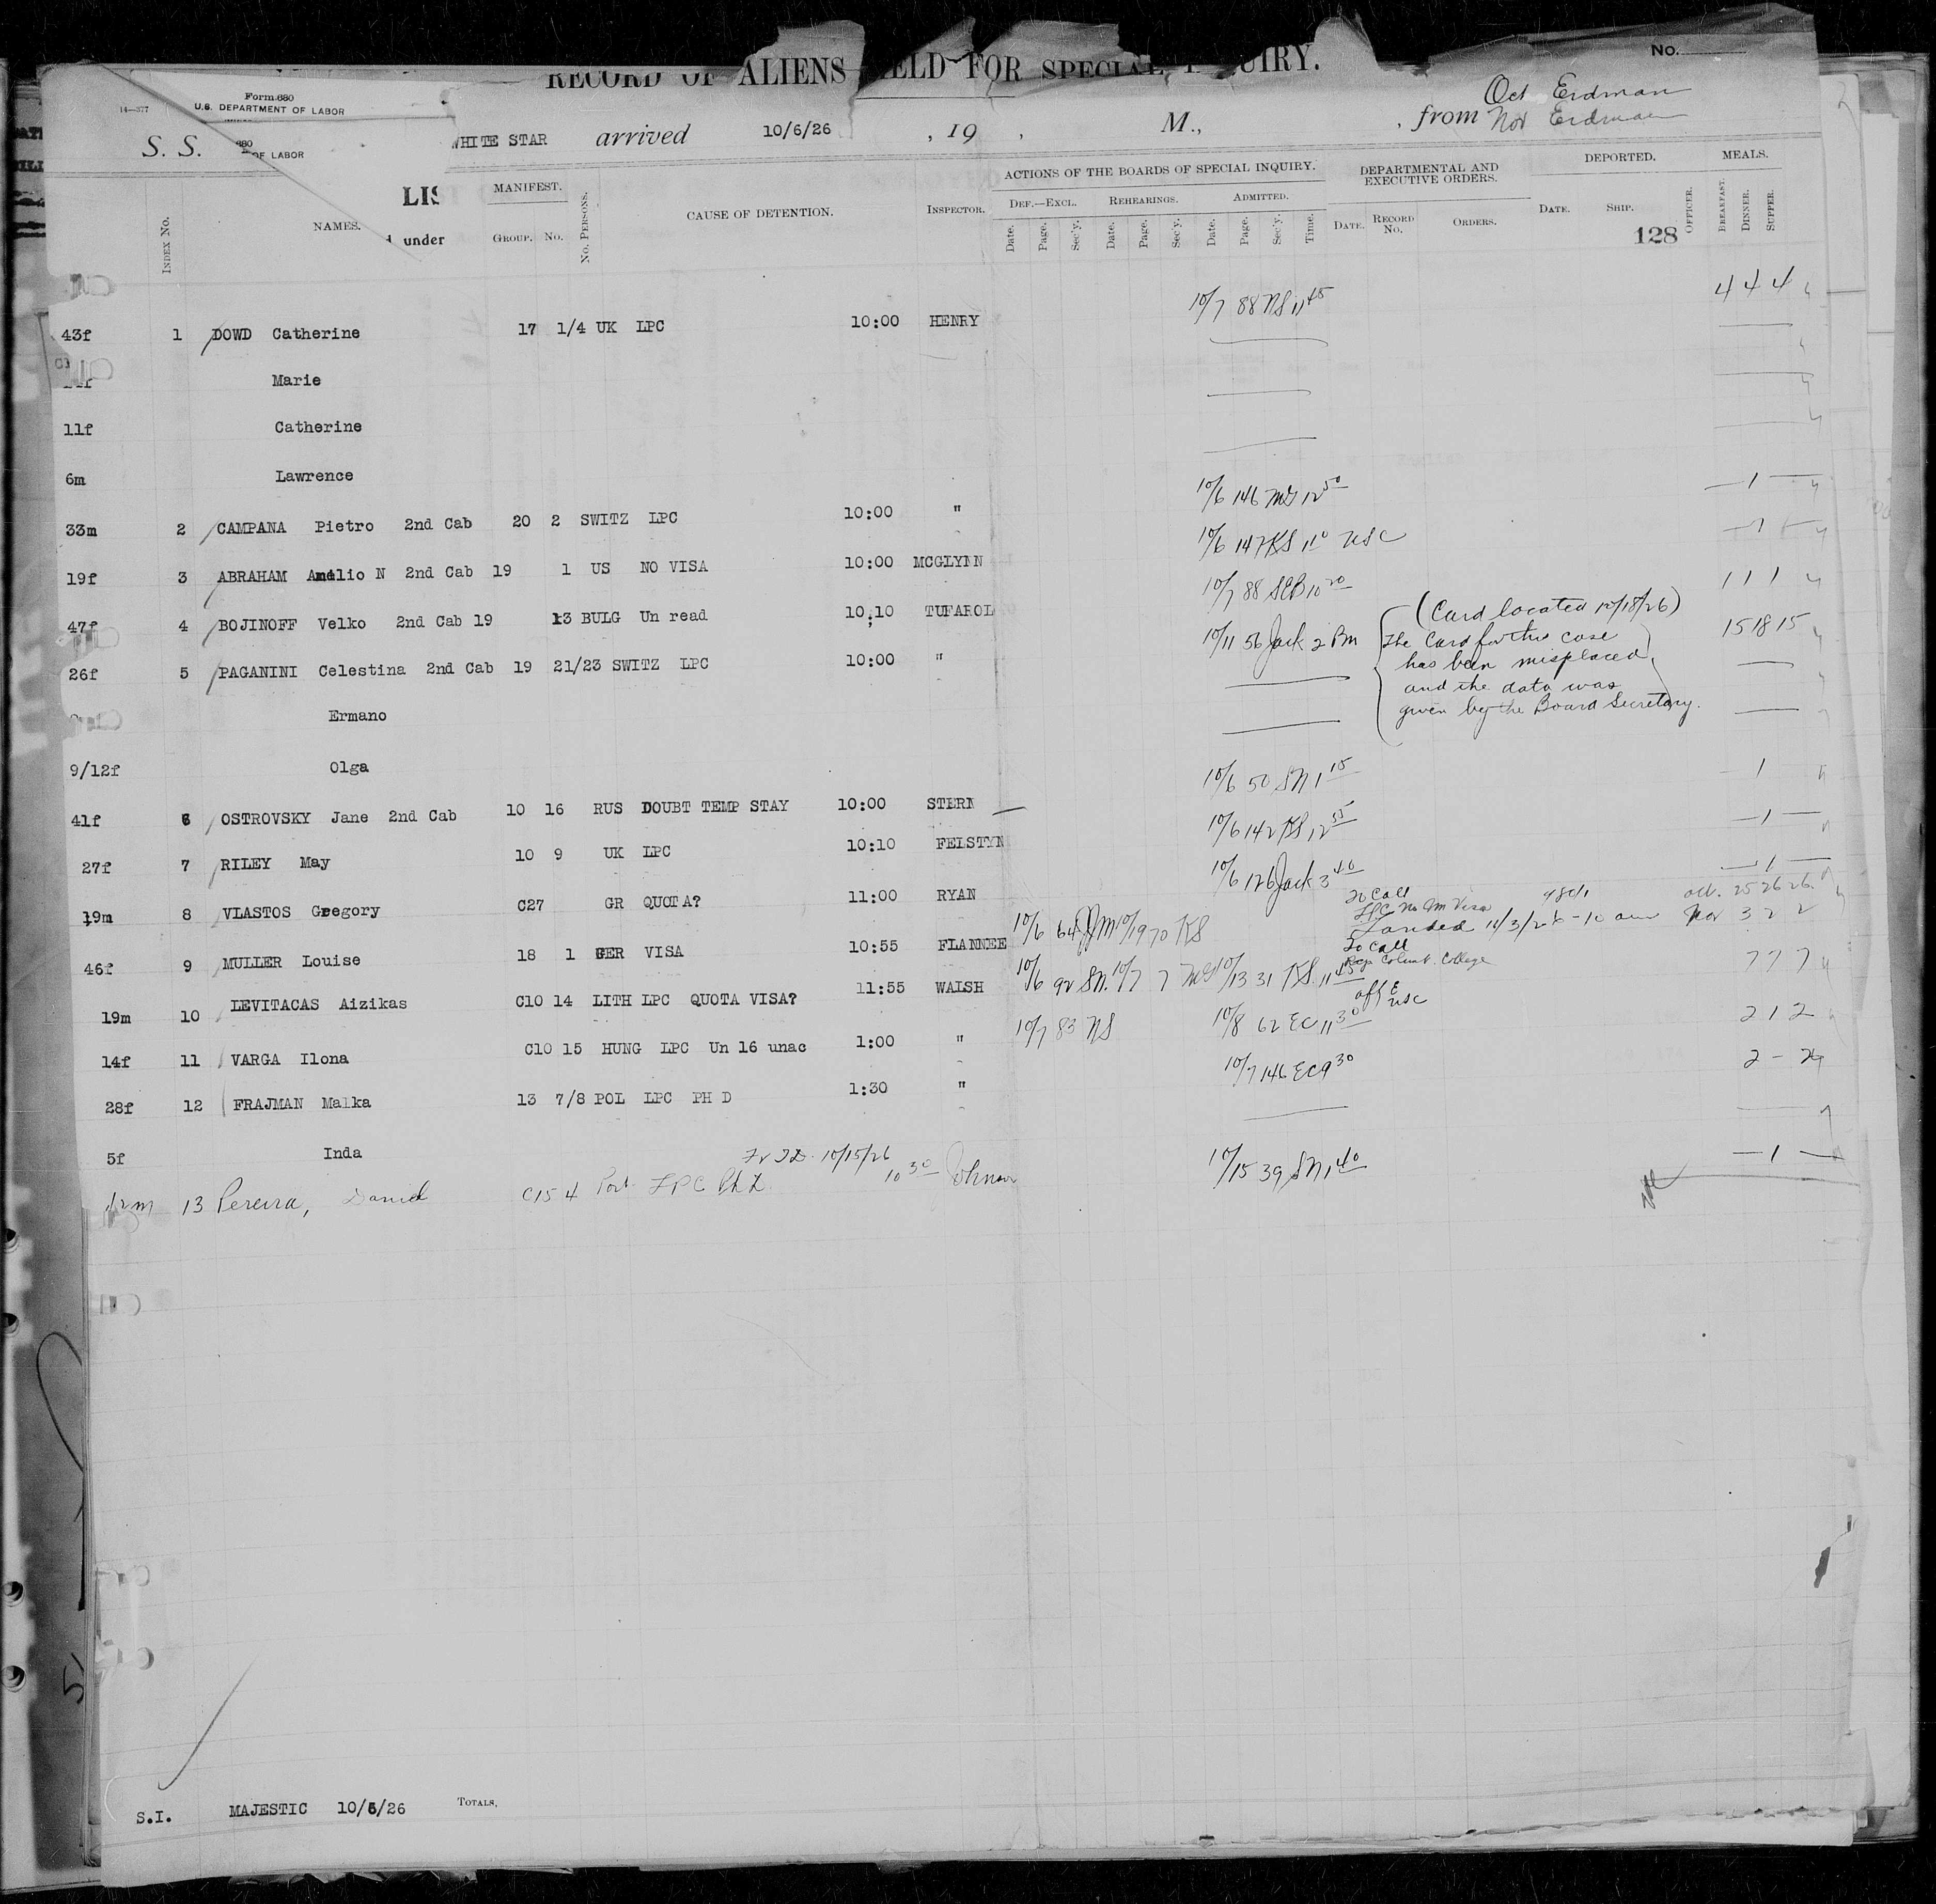 RECORD OF ALIENS HELD FOR SPECIAL INQUIRY.
No.
14—377
Form 680
U.S. DEPARTMENT OF LABOR
680
OF LABOR
S. S.
WHITE STAR arrived 10/6/26 , 19 , M., , from
Oct Erdman
Nov Erdman
LIS
under
INDEX NO.
NAMES.
MANIFEST.
GROUP. NO.
NO. PERSONS.
CAUSE OF DETENTION.
INSPECTOR.
ACTIONS OF THE BOARDS OF SPECIAL INQUIRY.
DEF.—EXCL. REHEARINGS. ADMITTED.
Date. Page. Sec'y. Date. Page. Sec'y. Date. Page. Sec'y. Time.
DEPARTMENTAL AND EXECUTIVE ORDERS.
DATE. RECORD NO. ORDERS.
DEPORTED.
DATE. SHIP. OFFICER.
128
MEALS.
BREAKFAST. DINNER. SUPPER.
43f 1 DOWD Catherine 17 1/4 UK LPC 10:00 HENRY 10/7 88 NS 11 45 4 4 4
Marie
11f Catherine
6m Lawrence
33m 2 CAMPANA Pietro 2nd Cab 20 2 SWITZ LPC 10:00 " 10/6 146 MG 12 50 — 1 —
19f 3 ABRAHAM Amelio N 2nd Cab 19 1 US NO VISA 10:00 MCGLYNN 10/6 147 KS 11 0 USC — 1 —
47f 4 BOJINOFF Velko 2nd Cab 19 13 BULG Un read 10;10 TUFAROL 10/7 88 SEB 10 20 1 1 1
26f 5 PAGANINI Celestina 2nd Cab 19 21/23 SWITZ LPC 10:00 " 10/11 56 Jack 2 Pm 15 18 15
(Card located 10/18/26)
The Card for this case
has been misplaced
and the data was
given by the Board Secretary.
Ermano
9/12f Olga
41f 6 OSTROVSKY Jane 2nd Cab 10 16 RUS DOUBT TEMP STAY 10:00 STERN 10/6 50 SN 1 15 — 1
27f 7 RILEY May 10 9 UK LPC 10:10 FELSTYN 10/6 142 KS 12 55 — 1 —
19m 8 VLASTOS Gregory C27 GR QUOTA? 11:00 RYAN 10/6 126 Jack 3 40 — 1 —
46f 9 MULLER Louise 18 1 GER VISA 10:55 FLANNEE 10/6 64 10/19 70 KS
To Call
LPC No Im Visa
Landed 11/3/26 - 10 am
Oct. 25 26 26
Nov 3 2 2
19m 10 LEVITACAS Aizikas C10 14 LITH LPC QUOTA VISA? 11:55 WALSH 10/6 92 SN. 10/7 7 MG 10/13 31 KS 11 45 7 7 7
To Call
College
14f 11 VARGA Ilona C10 15 HUNG LPC Un 16 unac 1:00 " 10/7 83 NS 10/8 62 EC 11 30 2 1 2
28f 12 FRAJMAN Malka 13 7/8 POL LPC PH D 1:30 " 10/7 146 EC 9 30 2 - 2
5f Inda
13 Pereira, Daniel C15 4 Port LPC Fr T.D. 10/15/26 10 30 Johnson 10/15 39 SN 1 40 — 1 —
S.I. MAJESTIC 10/6/26 TOTALS,